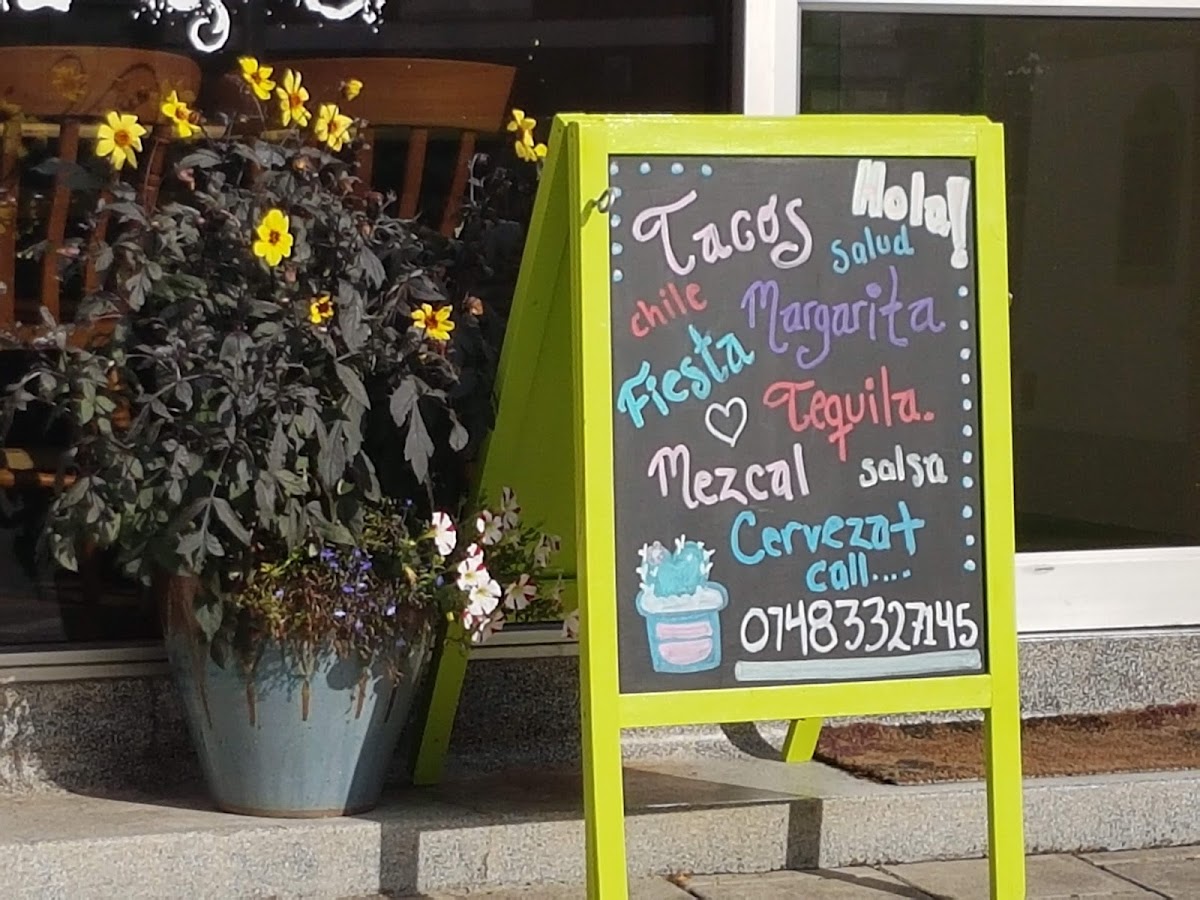 Hola!
Tacos
Salud
chile
Margarita
Fiesta
Tequila.
Mezcal
salsa
Cerveza +
call....
07483327145